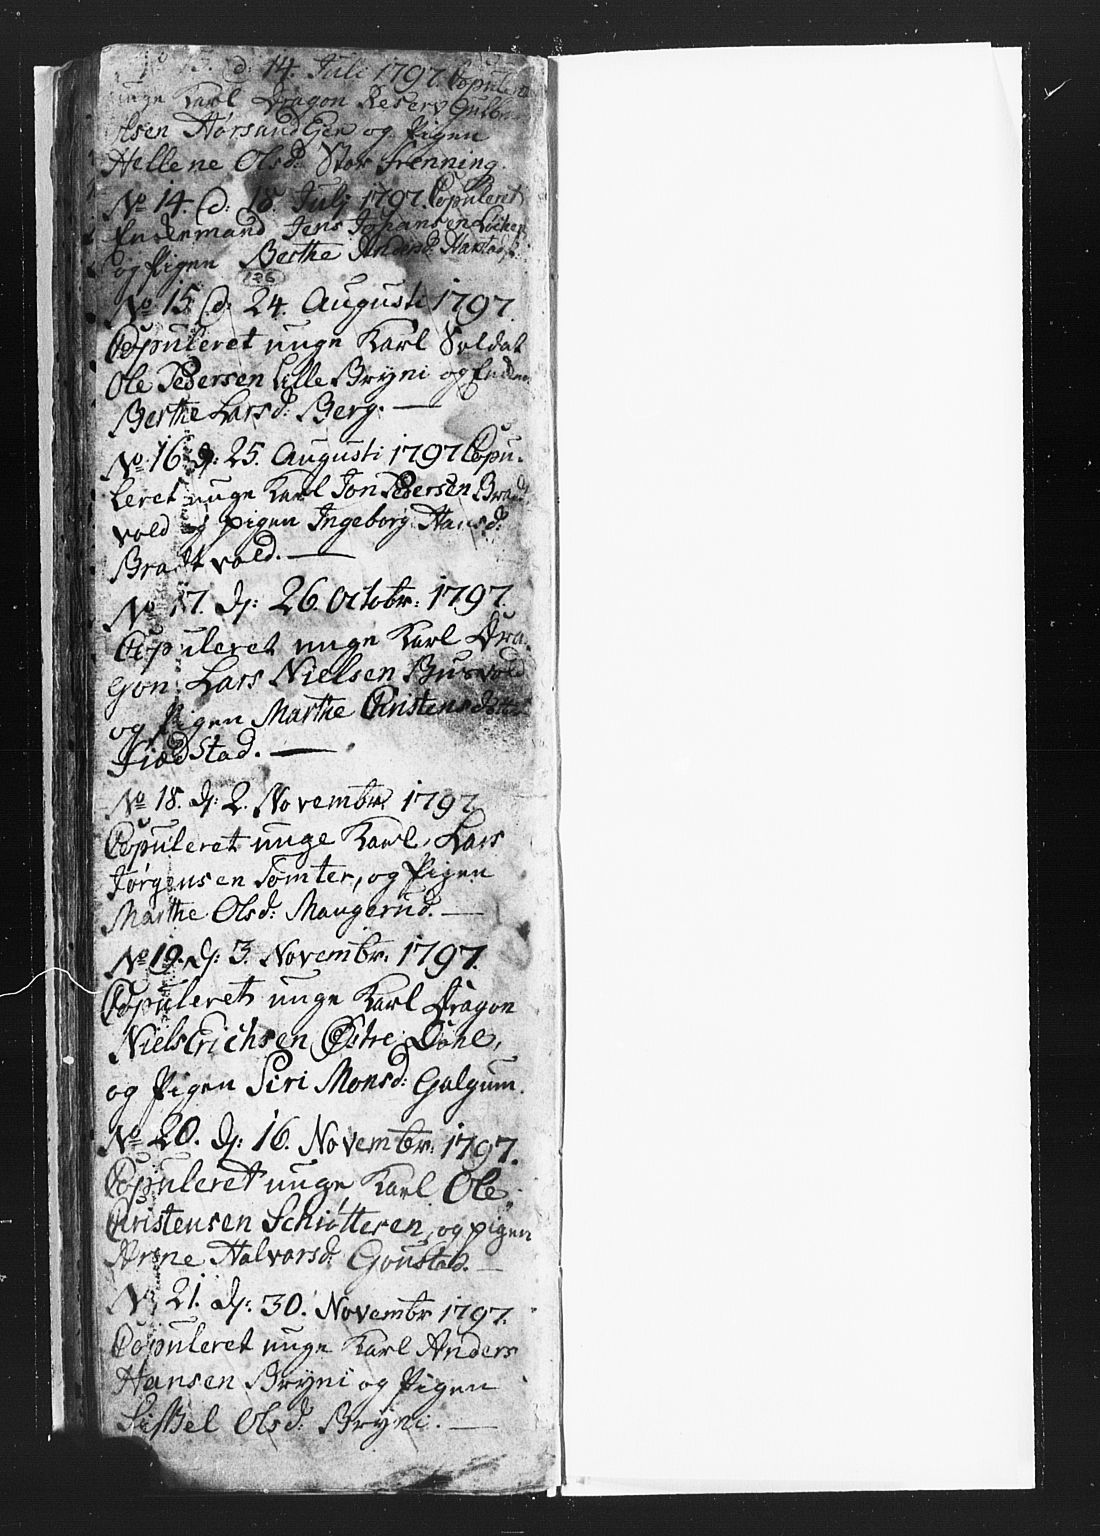 13. d: 14. Juli 1797. Copuleret
unge Karl Dragon Reserv Gulbr
Hørsand Eier og Pigen
Hellene Olsd: Stor Grenning.
No 14. d: 18. Juli 1797. Copuleret
Enkemand Jens Johansen
og Pigen Berthe Andersd:
126
No 15. d: 24. Augusti 1797.
Copuleret unge Karl Soldat
Ole Pedersen Lille Bryni og Enken
Berthe Larsd: Berg. —
No 16. d: 25. Augusti 1797 Copu-
leret unge Karl Jon Pedersen Bradt
vold og pigen Ingeborg Hansd:
Bradtvold. —
No 17. d: 26. Octobr: 1797.
Copuleret unge Karl Dra-
gon Lars Nielsen
og Pigen Marthe Christensdotter
Fiædstad. —
No 18. d: 2. Novembr. 1797.
Copuleret unge Karl, Lars
Jørgensen Tomter, og Pigen
Marthe Olsd: Maugerud. —
No 19. d: 3. Novembr. 1797.
Copuleret unge Karl Dragon
Niels Erichsen Østre Døhl,
og Pigen Siri Monsd: Galgum.
No 20. d: 16. Novembr: 1797.
Copuleret unge Karl Ole
Christensen Schiøtteren, og pigen
Arne Halvorsd: Gonstad. —
N: 21. d: 30. Novembr 1797.
Copuleret unge Karl Anders
Hansen Bryni og Pigen
Sissel Olsd: Bryni. —